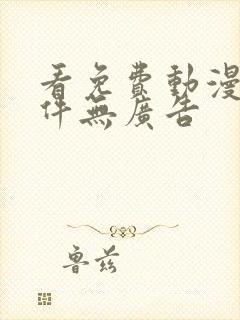 看免費動漫
件無廣告
魯茲